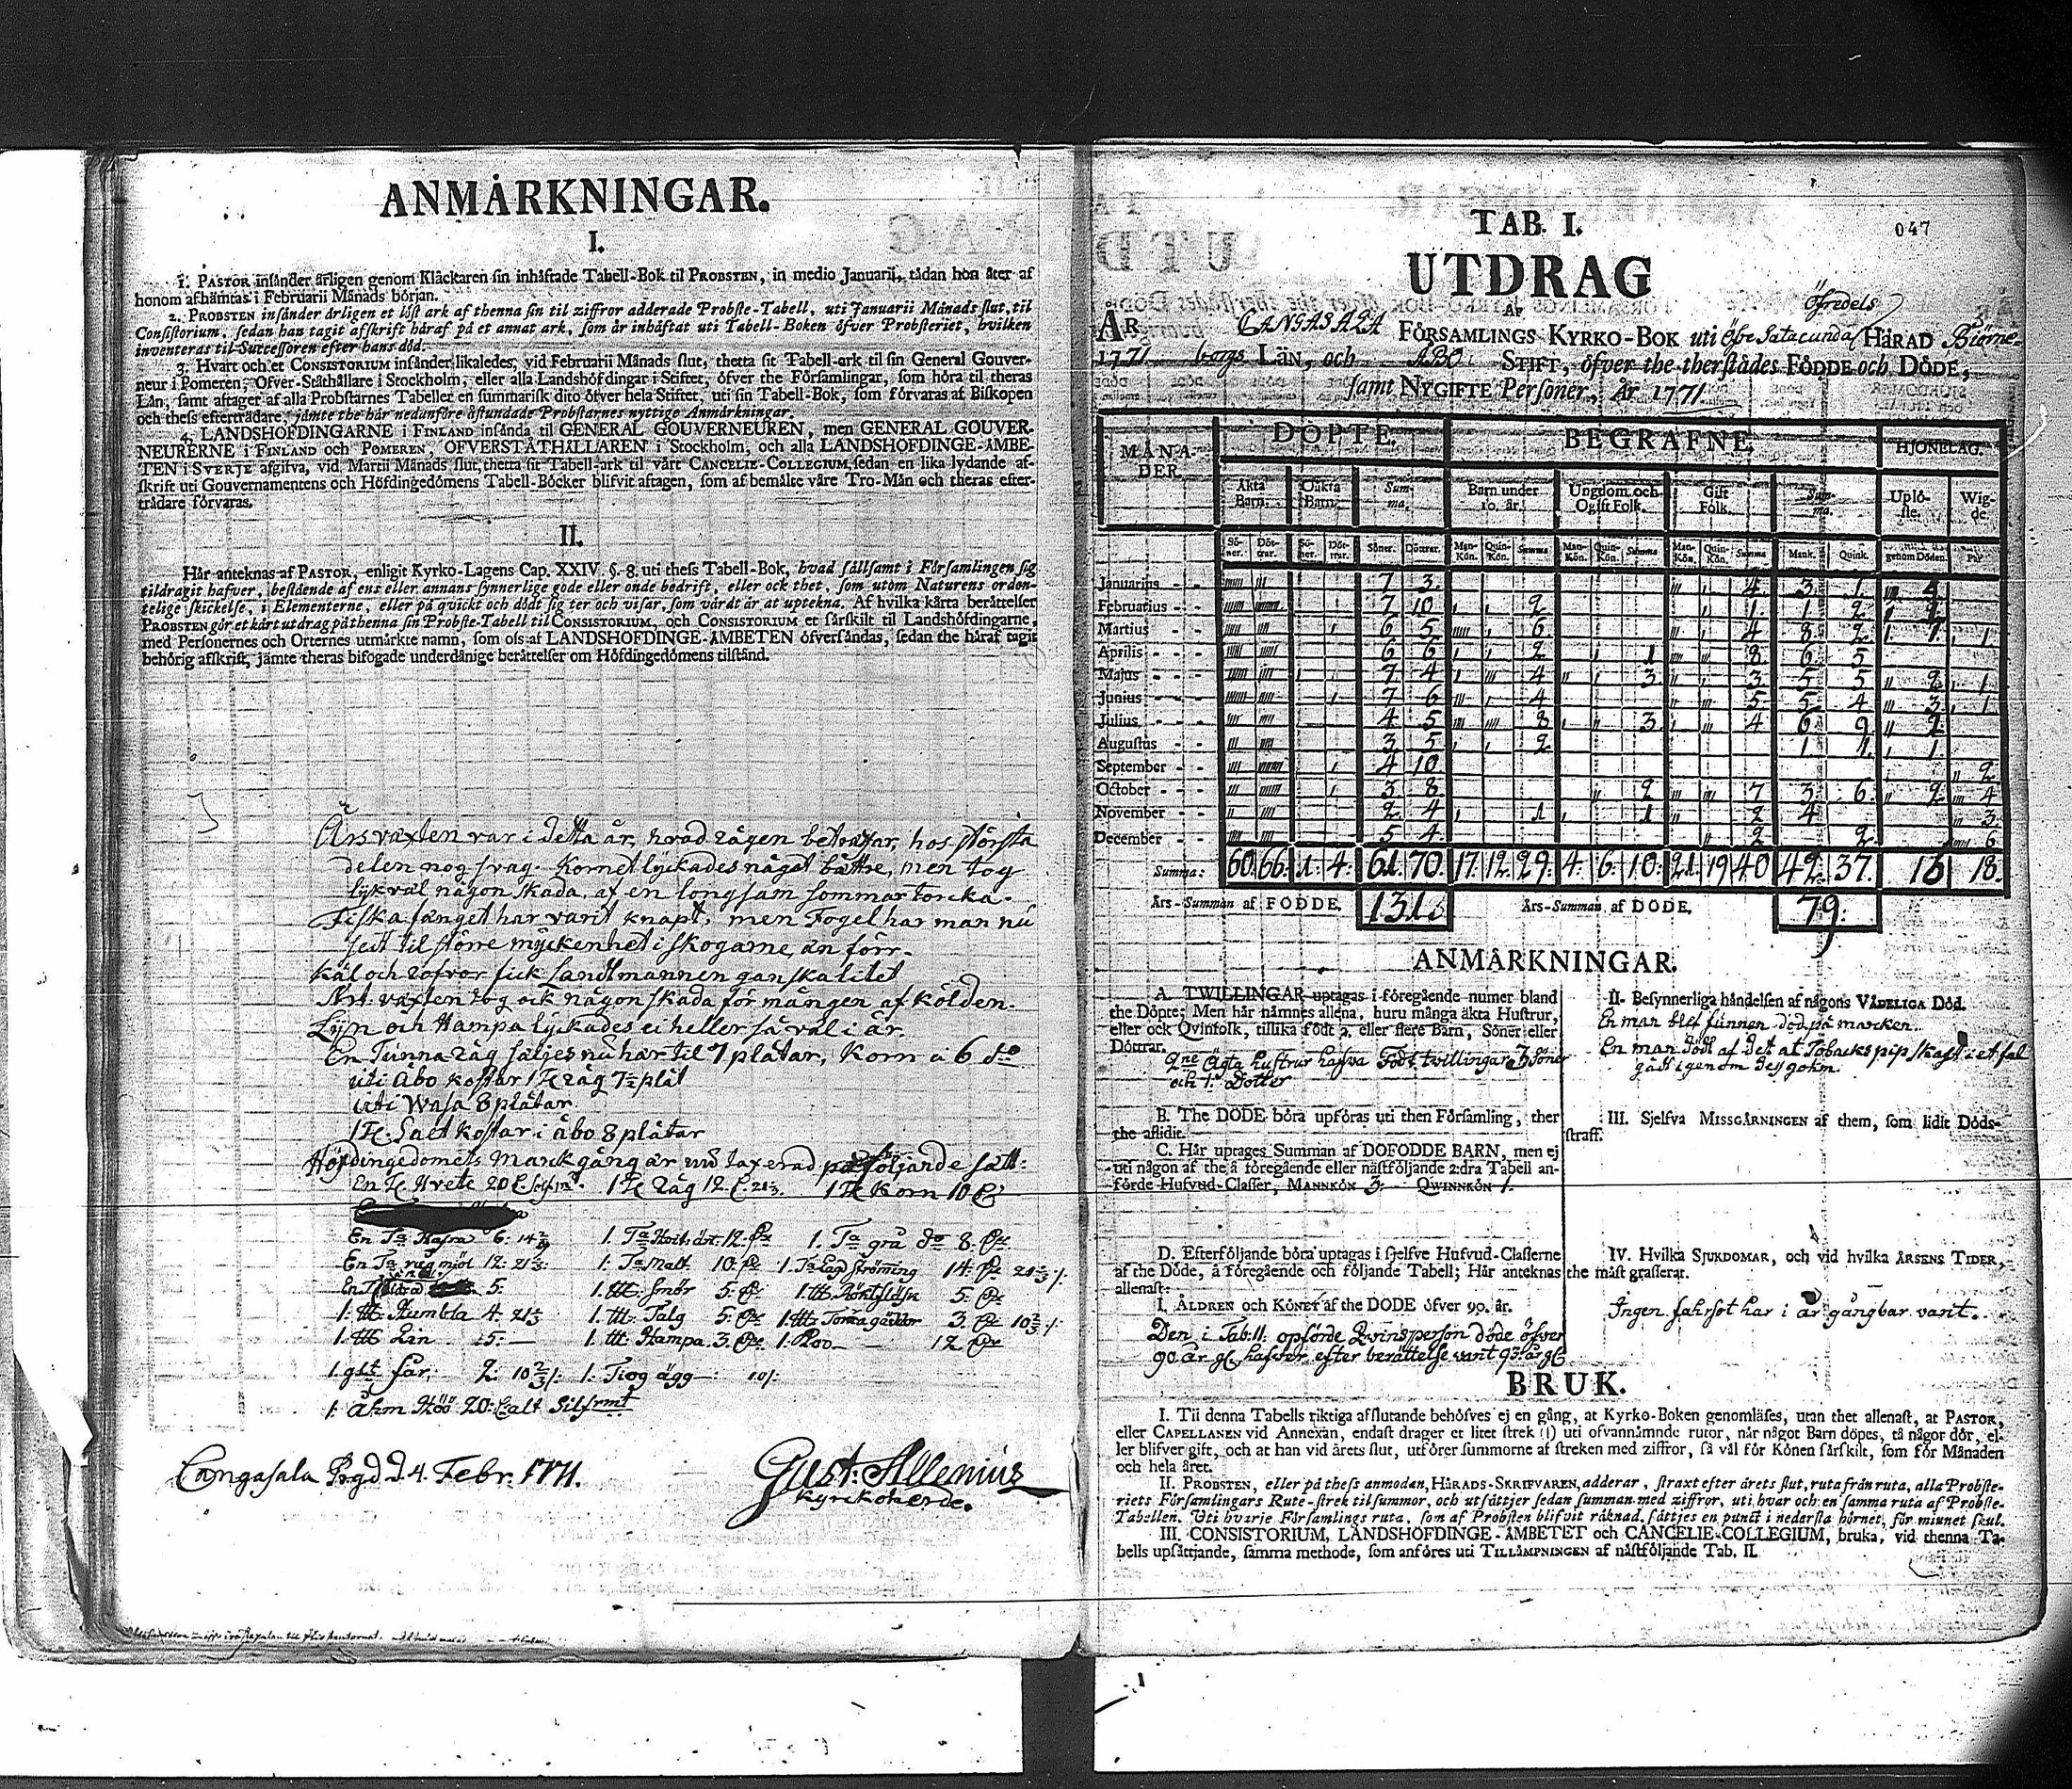 ANMÄRKNINGAR.
I.
1. PASTOR insänder årligen genom Kläckaren sin inhäftade Tabell-Bok til PROBSTEN, in medio Januarii, tådan hon åter af
honom afhämtas i Februarii Månads början.
2. PROBSTEN insänder årligen et löst ark af thenna sin til ziffror adderade Probste-Tabell, uti Januarii Månads slut, til
Consistorium, sedan han tagit afskrift häraf på et annat ark, som är inhäftat uti Tabell-Boken öfver Probsteriet, hvilken
inventeras til Successoren efter hans död.
3. Hvart och et CONSISTORIUM insänder likaledes, vid Februarii Månads slut, thetta sit Tabell-ark til sin General Gouver-
neur i Pomeren, Öfver-Ståthållare i Stockholm, eller alla Landshöfdingar i Stiftet, öfver the Församlingar, som höra til theras
Län, samt aftager af alla Probstarnes Tabeller en summarisk dito öfver hela Stiftet, uti sin Tabell-Bok, som förvaras af Biskopen
och thess efterträdare, jämte the här nedanföre åstundade Probstarnes nyttige Anmärkningar.
4. LANDSHÖFDINGARNE i FINLAND insända til GENERAL GOUVERNEUREN, men GENERAL GOUVER-
NEURERNE i FINLAND och POMEREN, ÖFVERSTÅTHÅLLAREN i Stockholm, och alla LANDSHÖFDINGE-ÄMBE-
TEN i SVERJE afgifva, vid Martii Månads slut, thetta sit Tabell-ark til vårt CANCELIE-COLLEGIUM, sedan en lika lydande af-
skrift uti Gouvernamentens och Höfdingedömens Tabell-Böcker blifvit aftagen, som af bemälte våre Tro-Män och theras efter-
trädare förvaras.
II.
Här anteknas af PASTOR, enligit Kyrko-Lagens Cap. XXIV. §. 8. uti thess Tabell-Bok, hvad sällsamt i Församlingen sig
tildragit hafver, bestående af ens eller annans synnerlige gode eller onde bedrift, eller ock thet, som utom Naturens orden-
telige skickelse, i Elementerne, eller på quickt och dödt sig ter och visar, som värdt är at uptekna. Af hvilka kärta berättelser
PROBSTEN gör et kårt utdrag på thenna sin Probste-Tabell til CONSISTORIUM, och CONSISTORIUM et särskilt til Landshöfdingarne,
med Personernes och Orternes utmärkte namn, som oss af LANDSHÖFDINGE-ÄMBETEN öfversändas, sedan the häraf tagit
behörig afskrift, jämte theras bifogade underdånige berättelser om Höfdingedömens tilstånd.
Årsväxten var i detta år, hvad rågen beträffar, hos största
delen nog svag. Kornet lyckades något bättre, men tog
likväl någon skada af en longsam sommar torcka.
Fiska fänget har varit knapt, men Fogel har man nu
sedt til större myckenhet i skogarne, än förr.
Kål och rofvor fick Landtmannen ganska litet
Ärt växten tog ock någon skada för mången af kölden.
Lijn och Hampa lyckades ei heller så väl i år.
En Tunna råg säljes nu här til 7 plåtar, Korn a 6 do
uti Åbo kostar 1 Tr råg 7½ plåt
uti Wasa 8 plåtar
1 Tr. Salt kostar i åbo 8 plåtar
Höfdingedömets Marckgång är wid taxerad på följande sätt:
En Tr Hvete 20 1 Tr Råg 12 1 Tr Korn 10
En Ta Hafra 6: 1. Ta 12: 1. Ta grå do 8:
En Ta rug mjöl 12: 21⅓: 1: Ta Malt 10: 1. Ta Ströming 14:
5: 1. Smör 5: 1. 5
1: Humbla 4: 21⅓ 1. Talg 5: 1. Torra gäddor 3: 10⅔
1. Lin 5: — 1. Hampa 3: 1. Koo — 12
1. får: 2: 10⅔ 1: Tiog ägg: 10
1: Åhm Höö 20: alt Silfrmt
Cangasala d. 4. Febr. 1771.
Gust: Allenius
Kyrckoherde.
TAB. I.
047
UTDRAG
AF
ÅR CANGASALA FÖRSAMLINGS KYRKO-BOK uti Öfre Satacunda Öfredels HÄRAD Biörne-
1771 borgs LÄN, och ÅBO STIFT, öfver the therstädes FÖDDE och DÖDE,
samt NYGIFTE Personer, År 1771
MÅNA-DER. DÖPTE. BEGRAFNE HJONELAG.
Äkta Barn. Oäkta Barn. Sum-ma. Barn under 10. år. Ungdom och Ogift Folk. Gift Folk. Sum-ma. Uplö-ste. Wig-de.
Sö-ner. Döt-trar. Sö-ner. Döt-trar. Söner. Döttrar. Man-Kön. Quin-Kön. Summa Man-Kön. Quin-Kön. Summa Man-Kön. Quin-Kön. Summa Mank. Quink. genom Döden. Par
Januarius - - 7 3 4 3 1 4
Februarius - - 7 10 2 1 1 2 2
Martius - - 6 5 6 4 8 2 1
Aprilis - - 6 6 2 1 8 6 5
Majus - - 7 4 4 3 3 5 5 2 1
Junius - - 7 6 4 5 5 4 3 1
Julius - - 4 5 8 3 4 6 9 2
Augustus - - 3 5 2 1 1 1
September - - 4 10 2
October - - 3 8 2 7 3 6 2 4
November - - 2 4 1 1 2 4 3
December - - 5 4 2 2 6
Summa: 60 66 1 4 61 70 17 12 29 4 6 10 21 19 40 42 37 16 18
Års-Summan af FÖDDE. 131. Års-Summan af DÖDE. 79.
ANMÄRKNINGAR.
A. TWILLINGAR uptagas i föregående numer bland
the Döpte; Men här nämnes allena, huru många äkta Hustrur,
eller ock Qvinfolk, tillika födt 2. eller flere Barn, Söner eller
Döttrar.
2ne Ägta hustrur hafva Födt twillingar 3 Söner
och 1. Dotter
B. The DÖDE böra upföras uti then Församling, ther
the aflidit.
C. Här uptages Summan af DÖFÖDDE BARN, men ej
uti någon af the å föregående eller nästföljande 2:dra Tabell an-
förde Hufvud-Classer, MANNKÖN 3. QWINNKÖN 1.
D. Efterföljande böra uptagas i sjelfve Hufvud-Classerne
af the Döde, å föregående och följande Tabell; Här anteknas
allenast:
I. ÅLDREN och KÖNET af the DÖDE öfver 90. år.
Den i Tab: II. opförde Qvinsperson döde öfver
90 år gl. hafver efter berättelse varit 93 år gl
II. Besynnerliga händelsen af någons VÅDELIGA DÖD.
En man blef funnen död på marcken.
En man dödt af det at Tobacks pip skaft i et fal
gådt igenom dess gohm.
III. Sjelfva MISSGÄRNINGEN af them, som lidit Döds-
straff.
IV. Hvilka SJUKDOMAR, och vid hvilka ÅRSENS TIDER,
the mäst grasserar.
Ingen farsot har i år gångbar varit.
BRUK.
I. Til denna Tabells riktiga afslutande behöfves ej en gång, at Kyrko-Boken genomläses, utan thet allenast, at PASTOR,
eller CAPELLANEN vid Annexan, endast drager et litet strek (|) uti ofvannämnde rutor, när något Barn döpes, tå någor dör, el-
ler blifver gift, och at han vid årets slut, utförer summorne af streken med ziffror, så väl för Könen särskilt, som för Månaden
och hela året.
II. PROBSTEN, eller på thess anmodan, HÄRADS-SKRIFVAREN, adderar, straxt efter årets slut, ruta från ruta, alla Probste-
riets Församlingars Rute-strek til summor, och utsättjer sedan summan med ziffror, uti hvar och en samma ruta af Probste-
Tabellen. Uti hvarje Församlings ruta, som af Probsten blifvit räknad, sättjes en punct i nedersta hörnet, för minnet skul.
III. CONSISTORIUM, LANDSHÖFDINGE-ÄMBETET och CANCELIE-COLLEGIUM, bruka, vid thenna Ta-
bells upsättjande, samma methode, som anföres uti TILLÄMPNINGEN af nästföljande Tab. II.